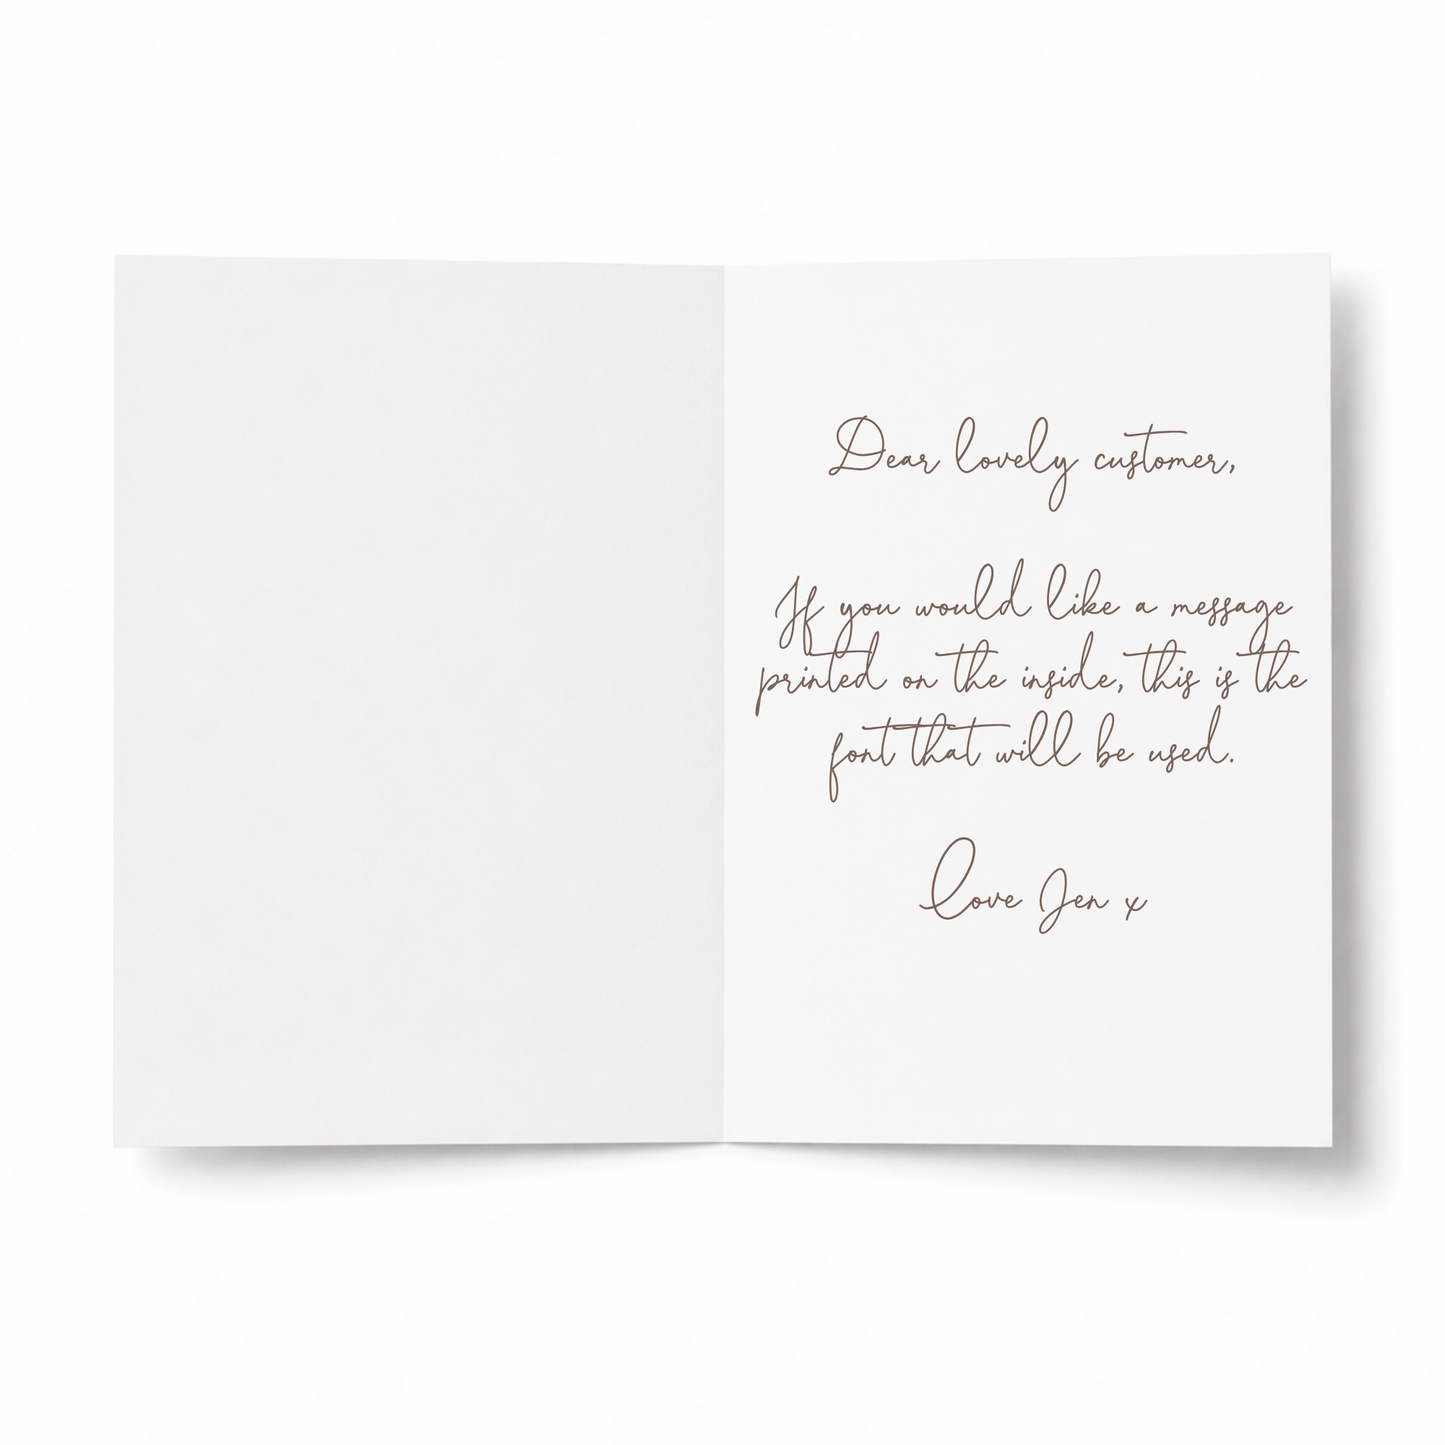 Dear lovely customer,
If you would like a message
printed on the inside, this is the
font that will be used.
Love Jen x